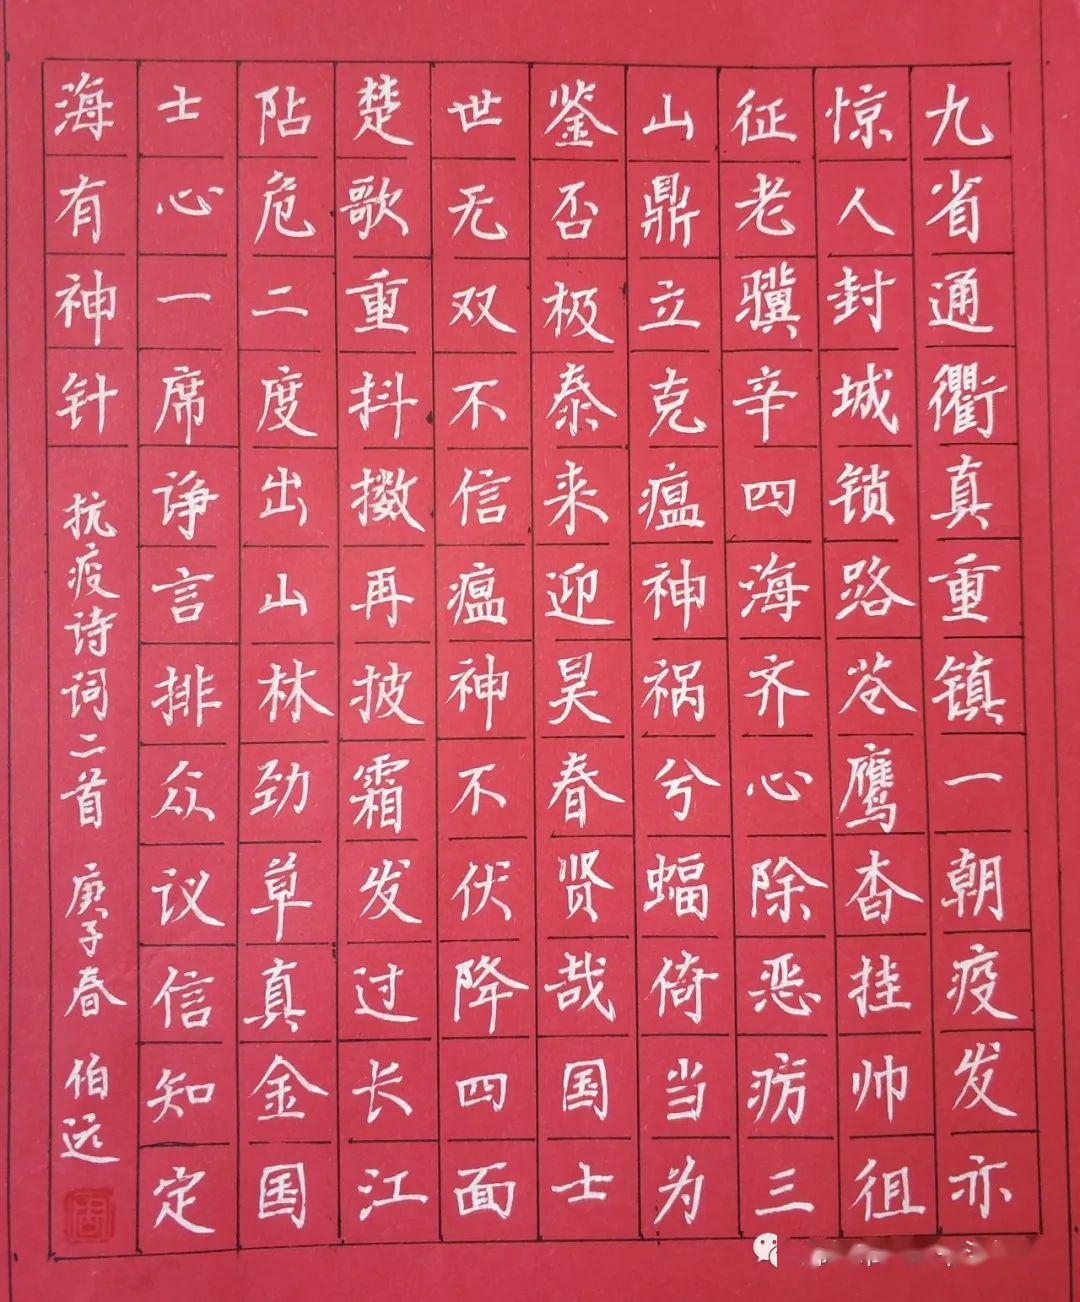 九省通衢真重镇一朝疫发亦
惊人封城锁路苍鹰杳挂帅徂
征老骥辛四海齐心除恶疠三
山鼎立克瘟神祸兮蝠倚当为
鉴否极泰来迎昊春贤哉国士
世无双不信瘟神不伏降四面
楚歌重抖擞再披霜发过长江
阽危二度出山林劲草真金国
士心一席诤言排众议信知定
海有神针 抗疫诗词二首 庚子春 伯远